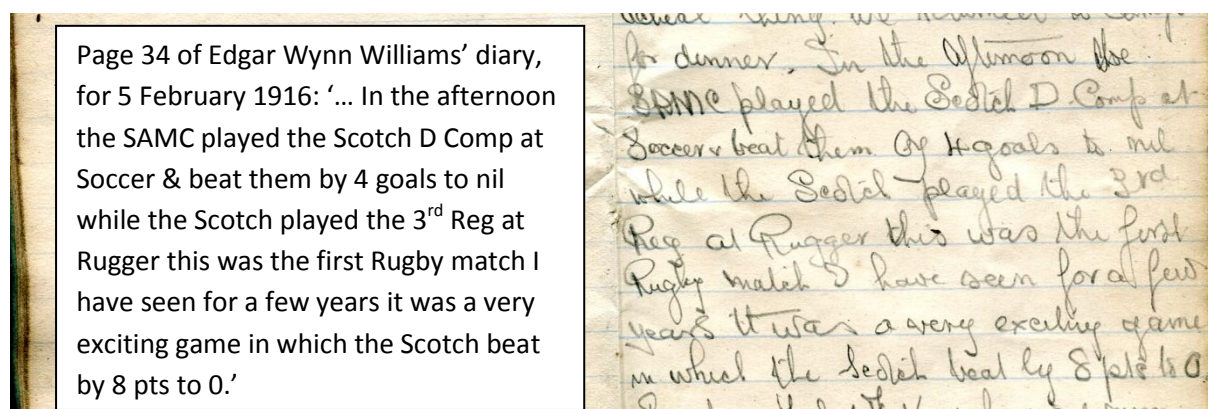 Page 34 of Edgar Wynn Williams’ diary,
for 5 February 1916: ‘… In the afternoon
the SAMC played the Scotch D Comp at
Soccer & beat them by 4 goals to nil
while the Scotch played the 3rd Reg at
Rugger this was the first Rugby match I
have seen for a few years it was a very
exciting game in which the Scotch beat
by 8 pts to 0.’
thing. we returned to Camp
for dinner. In the afternoon the
SAMC played the Scotch D. Comp at
Soccer & beat them by 4 goals to nil
while the Scotch played the 3rd
Reg at Rugger this was the first
Rugby match I have seen for a few
years It was a very exciting game
in which the Scotch beat by 8 pts to 0